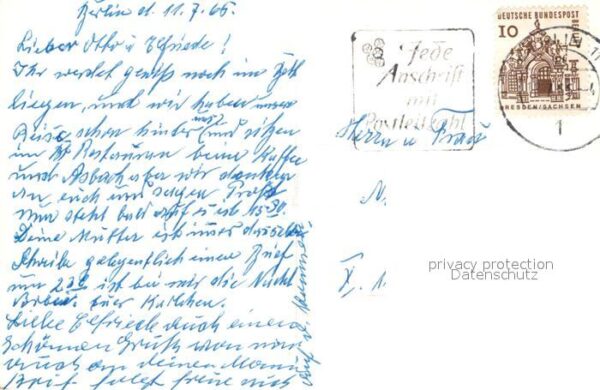 Berlin d. 11.7.65.
Lieber Otto u. Elfriede!
Ihr werdet gewiß noch im Bett
liegen, und wir haben unsere
Reise schon hinter uns und sitzen
im Restaurant beim Kaffee
und Asbach aber wir denken
an euch und sagen Prost
nun steht bald auf
Deine Mutter ist
schreibe gelegentlich einen Brief
um 23 ist bei mir die Nacht
vorbei. euer Karlchen.
Liebe Elfriede auch einen
schönen Gruß von mir
auch an deinen Mann
Brief folgt freue mich
Jede
Anschrift
mit
Postleitzahl
DEUTSCHE BUNDESPOST
10
DRESDEN/SACHSEN
1
Herrn u. Frau
N.
X. 1.
privacy protection
Datenschutz